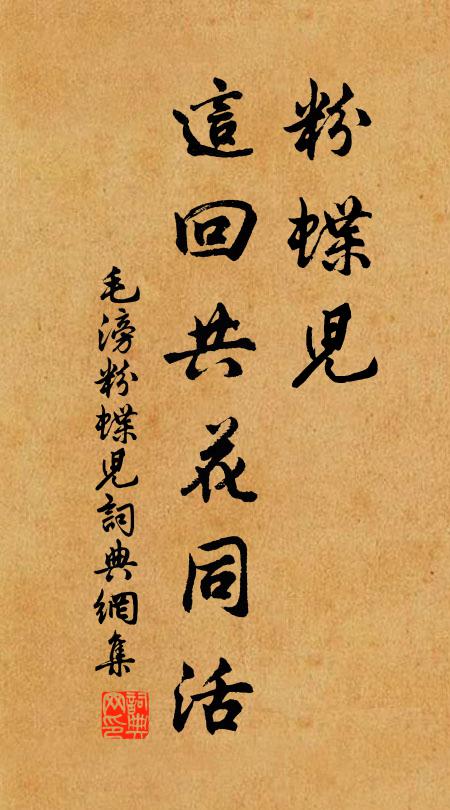 粉蝶児
這回共花同活
毛滂粉蝶児詞典網集
詞典网印